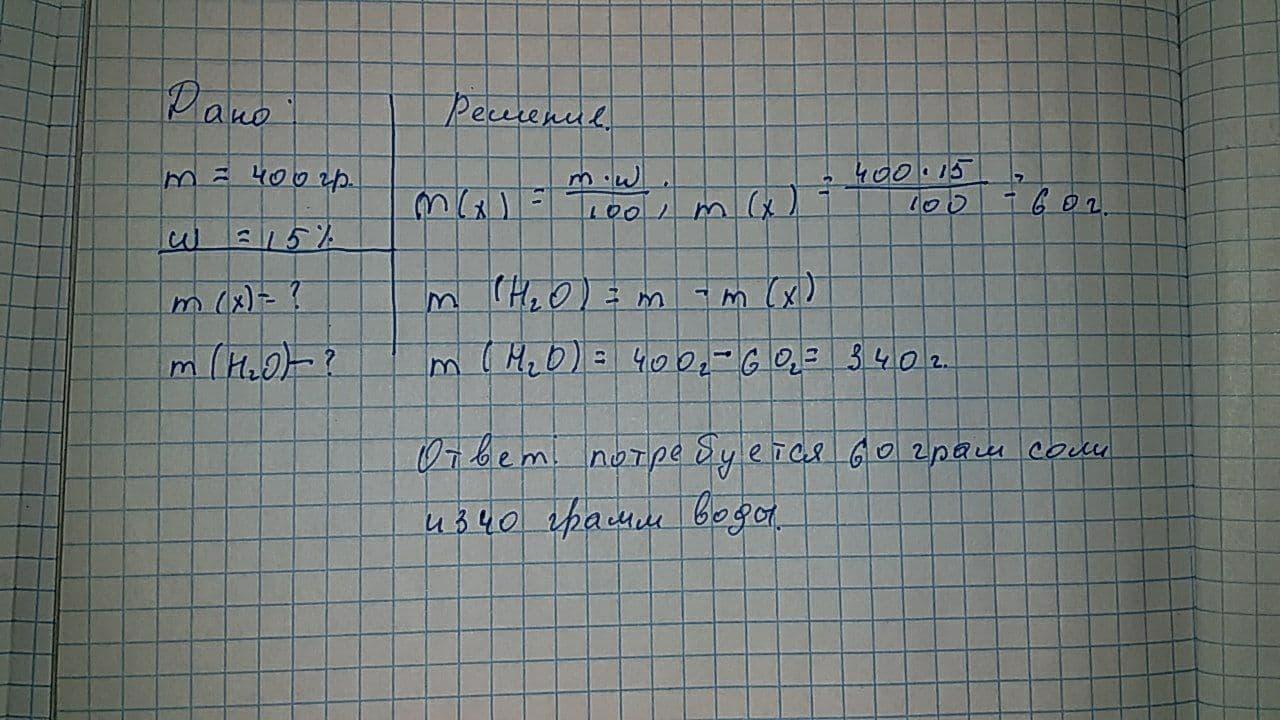 Дано:
m = 400 гр.
w = 15%
m (x) - ?
m (H₂O) - ?
Решение.
m(x) = m·w/100; m (x) = 400·15/100 = 60г.
m (H₂O) = m - m (x)
m (H₂O) = 400г - 60г = 340г.
Ответ: потребуется 60 грам соли
и 340 грамм воды.